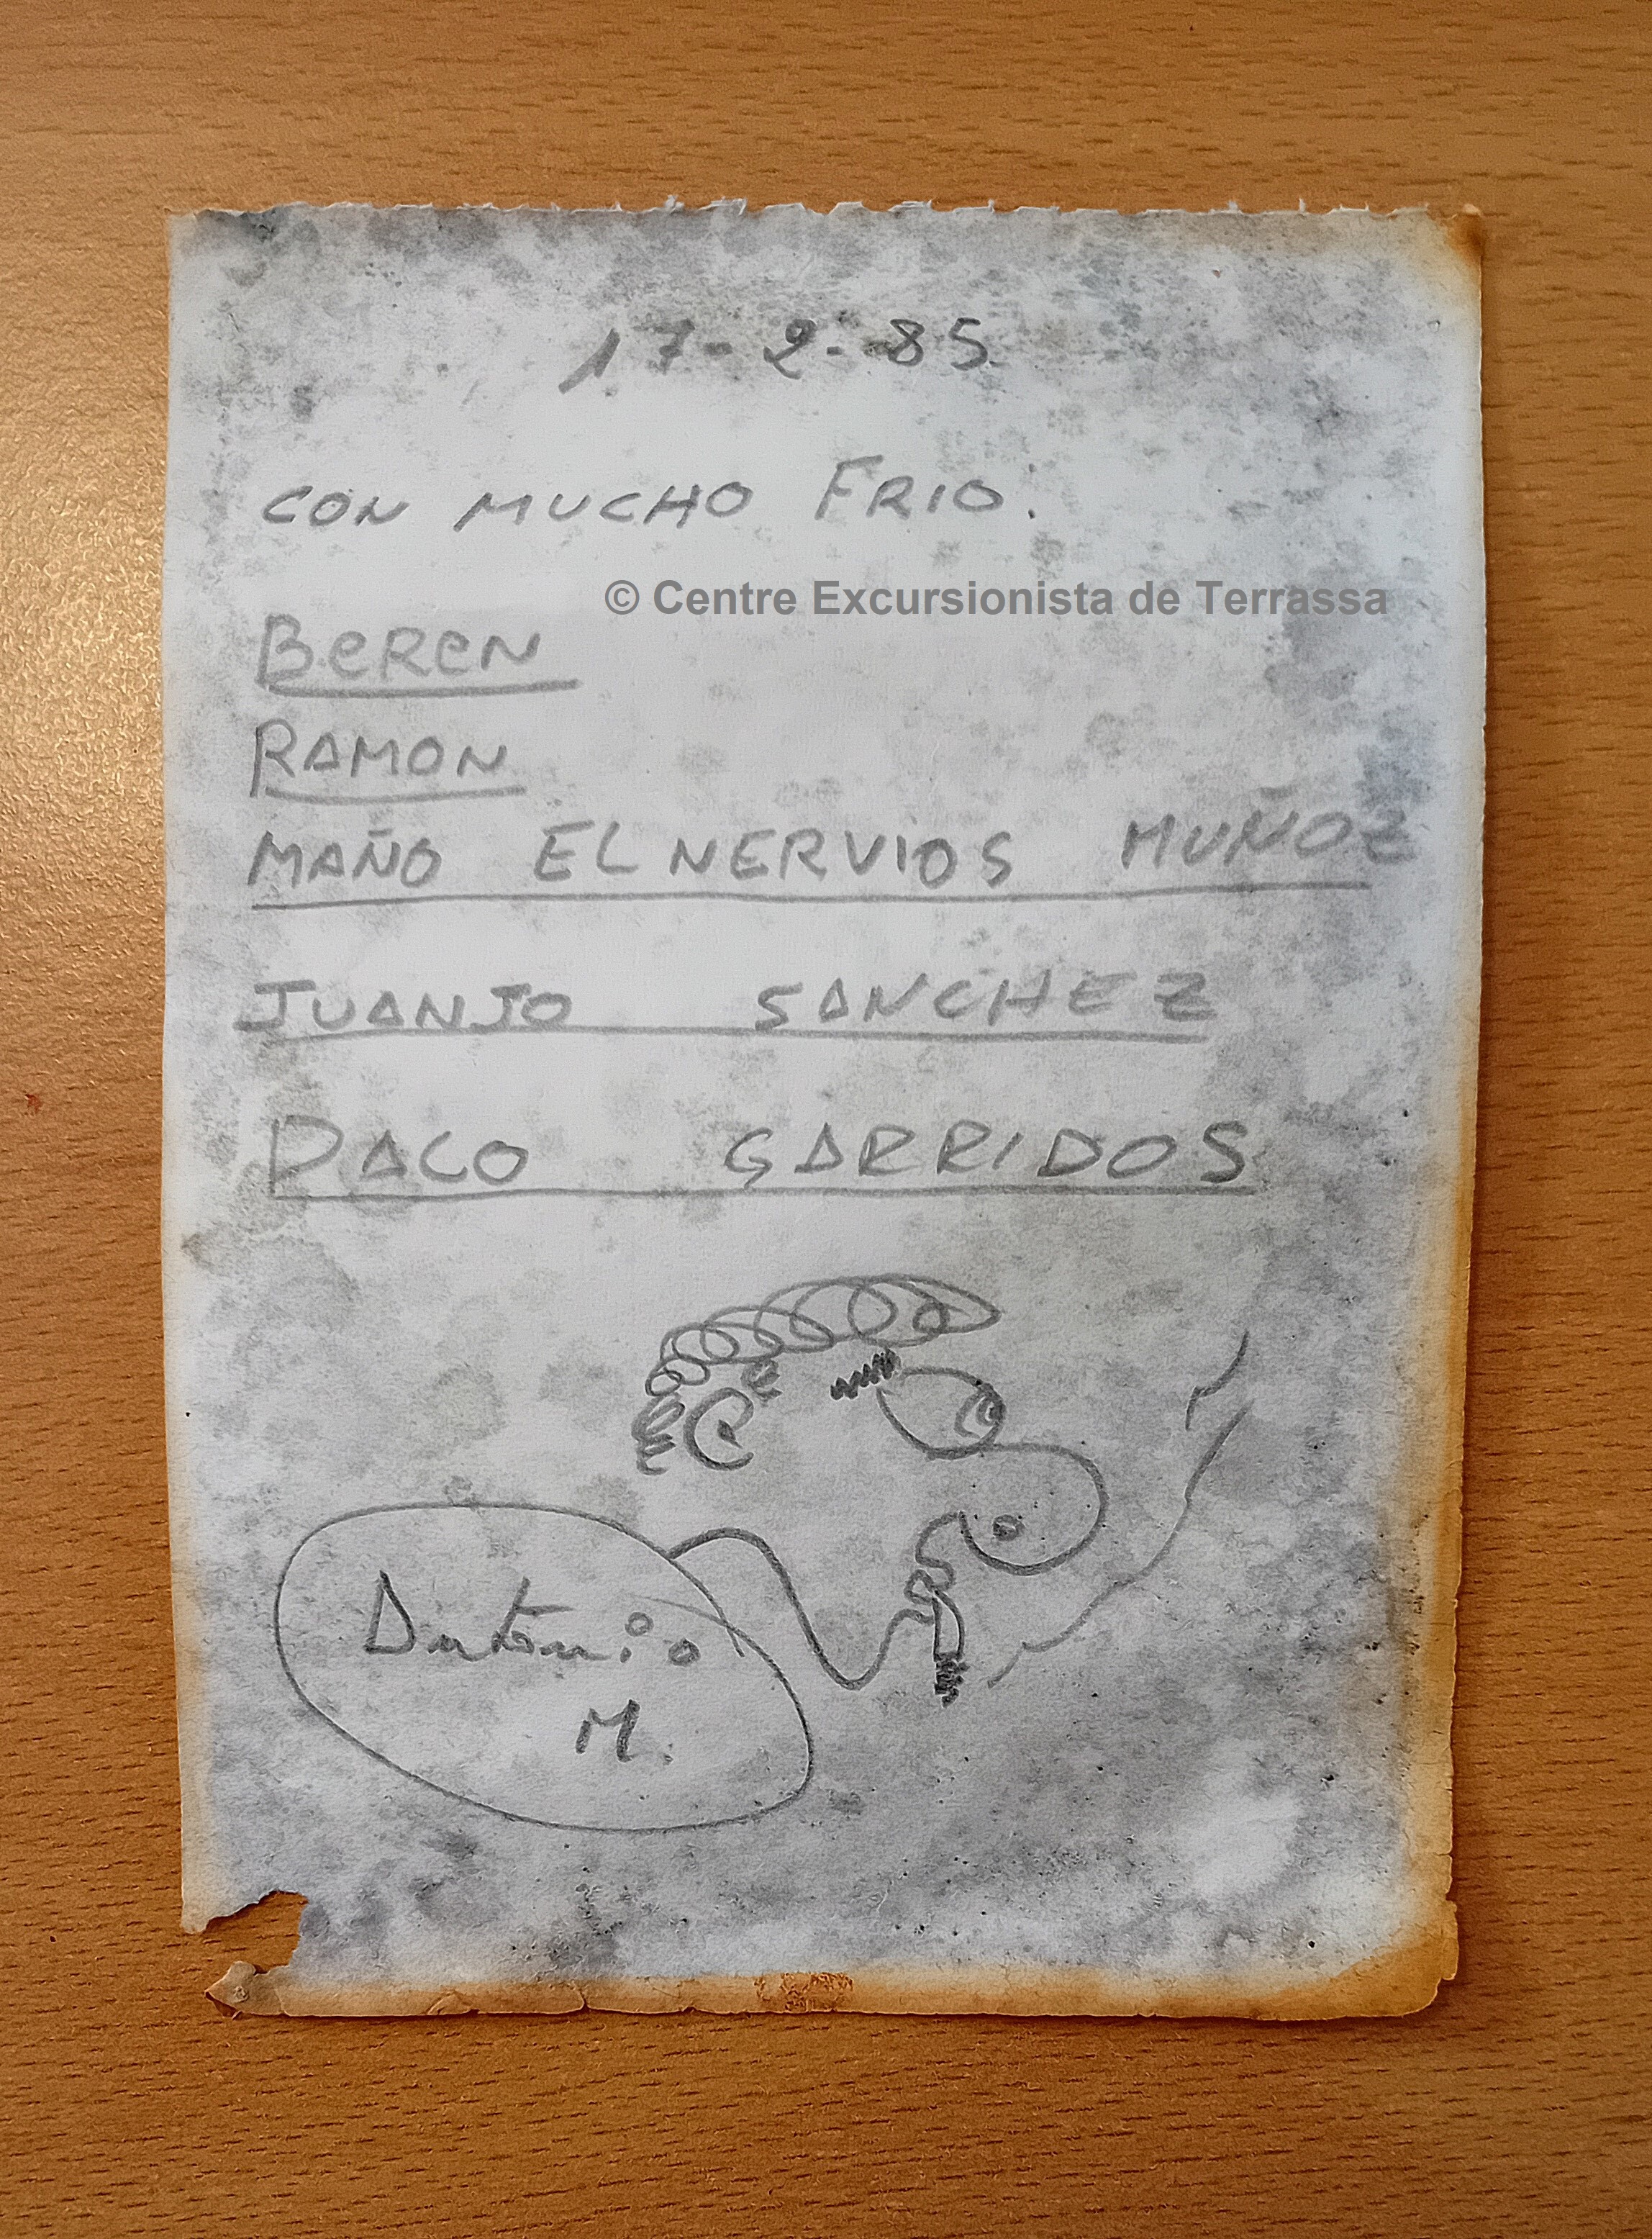 17-2-85
CON MUCHO FRIO.
© Centre Excursionista de Terrassa
BEREN
RAMON
MAÑO EL NERVIOS MUÑOZ
JUANJO SANCHEZ
PACO GARRIDOS
Antonio
M.